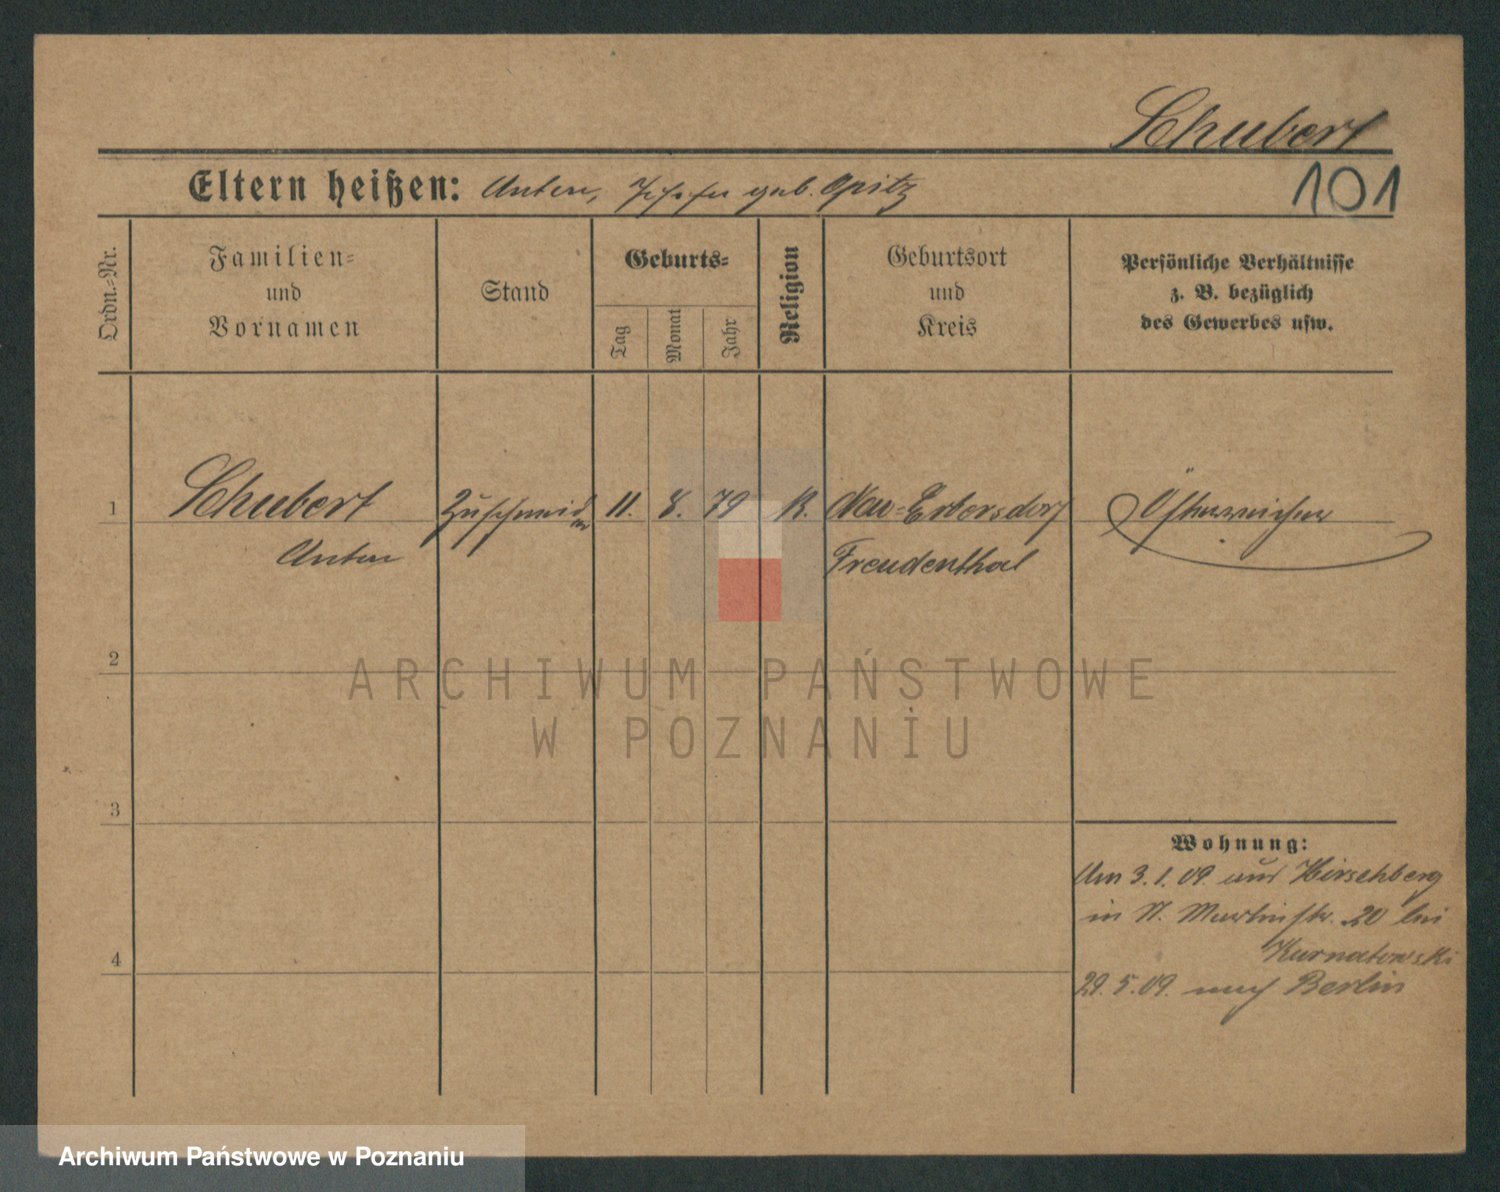 Schubert
Eltern heißen: Anton, Josefa geb. Opitz
101
Ordn.-Nr.
Familien-
und
Vornamen
Stand
Geburts-
Tag
Monat
Jahr
Religion
Geburtsort
und
Kreis
Persönliche Verhältnisse
z. B. bezüglich
des Gewerbes usw.
1
Schubert
Anton
Zuschneider
11. 8. 79
K.
Neu-Erbersdorf
Freudenthal
Österreicher
2
3
4
Wohnung:
Am 3.1.09. aus Hirschberg
in St. Martinstr. 20 bei
Kurnatowski
29.5.09. nach Berlin
ARCHIWUM PAŃSTWOWE
W POZNANIU
Archiwum Państwowe w Poznaniu